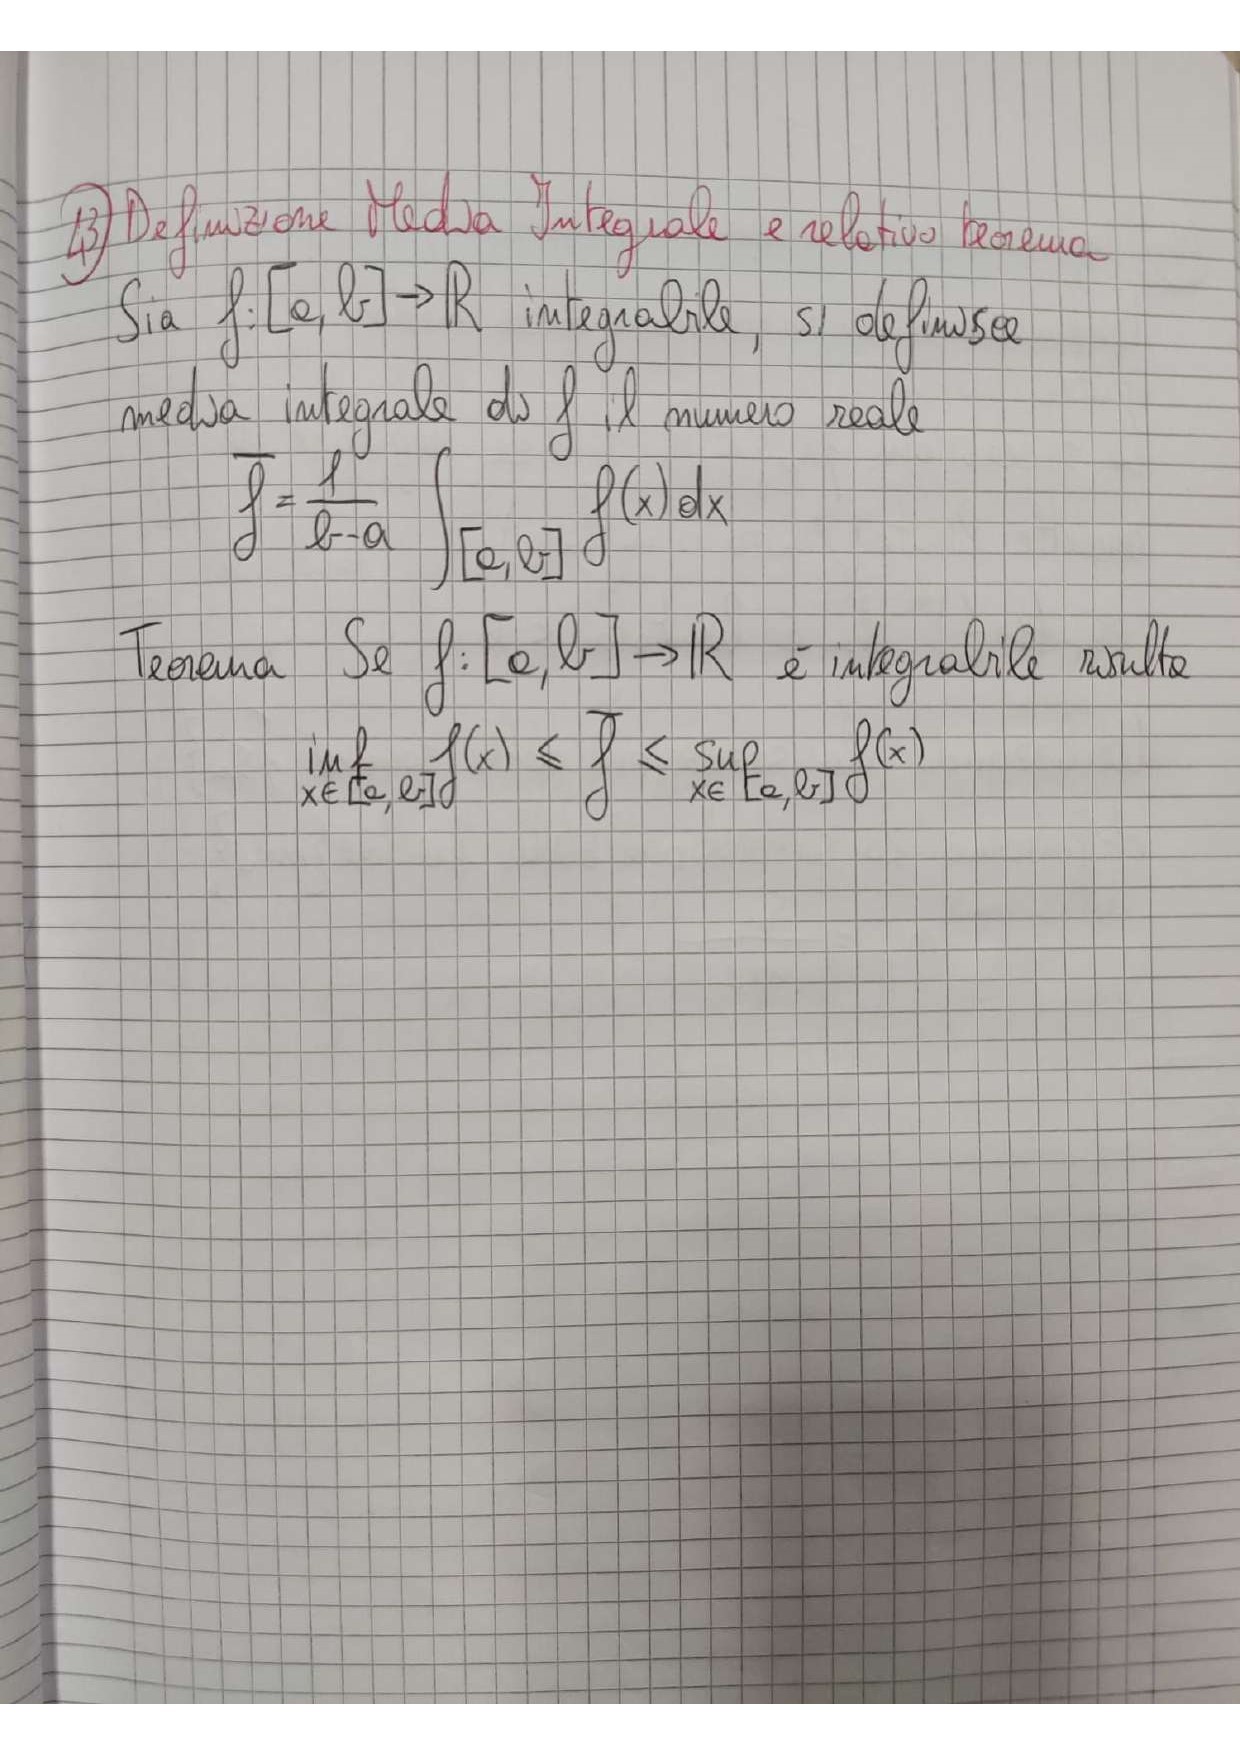 43) Definizione Media Integrale e relativo teorema
Sia f: [a, b] → ℝ integrabile, si definisce
media integrale di f il numero reale
f̅ = 1/(b-a) ∫_[a,b] f(x) dx
Teorema Se f: [a, b] → ℝ è integrabile risulta
inf_{x∈[a,b]} f(x) ≤ f̅ ≤ sup_{x∈[a,b]} f(x)